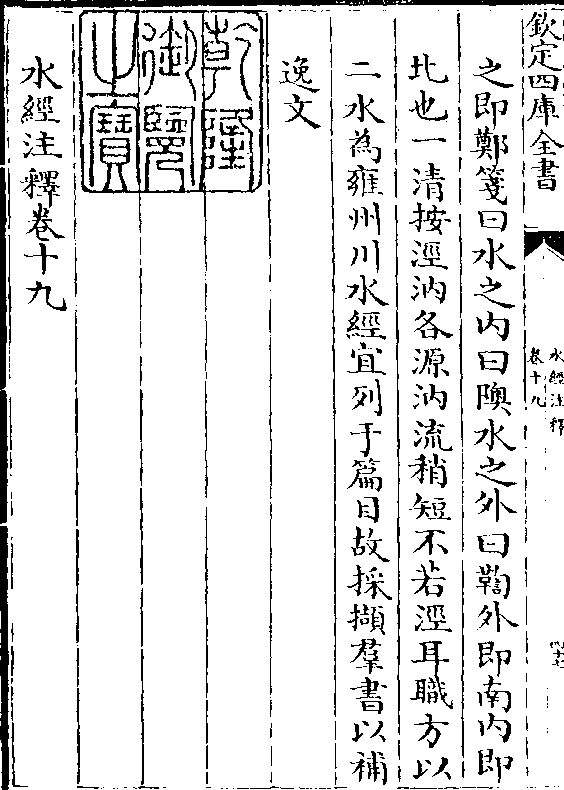 欽定四庫全書
水經注釋
卷十九
之即鄭箋曰水之内曰隩水之外曰鞫外即南内即
北也一清按涇汭各源汭流稍短不若涇耳職方以
二水為雍州川水經宜列于篇目故採擷羣書以補
逸文
乾隆
御覽
之寶
水經注釋卷十九